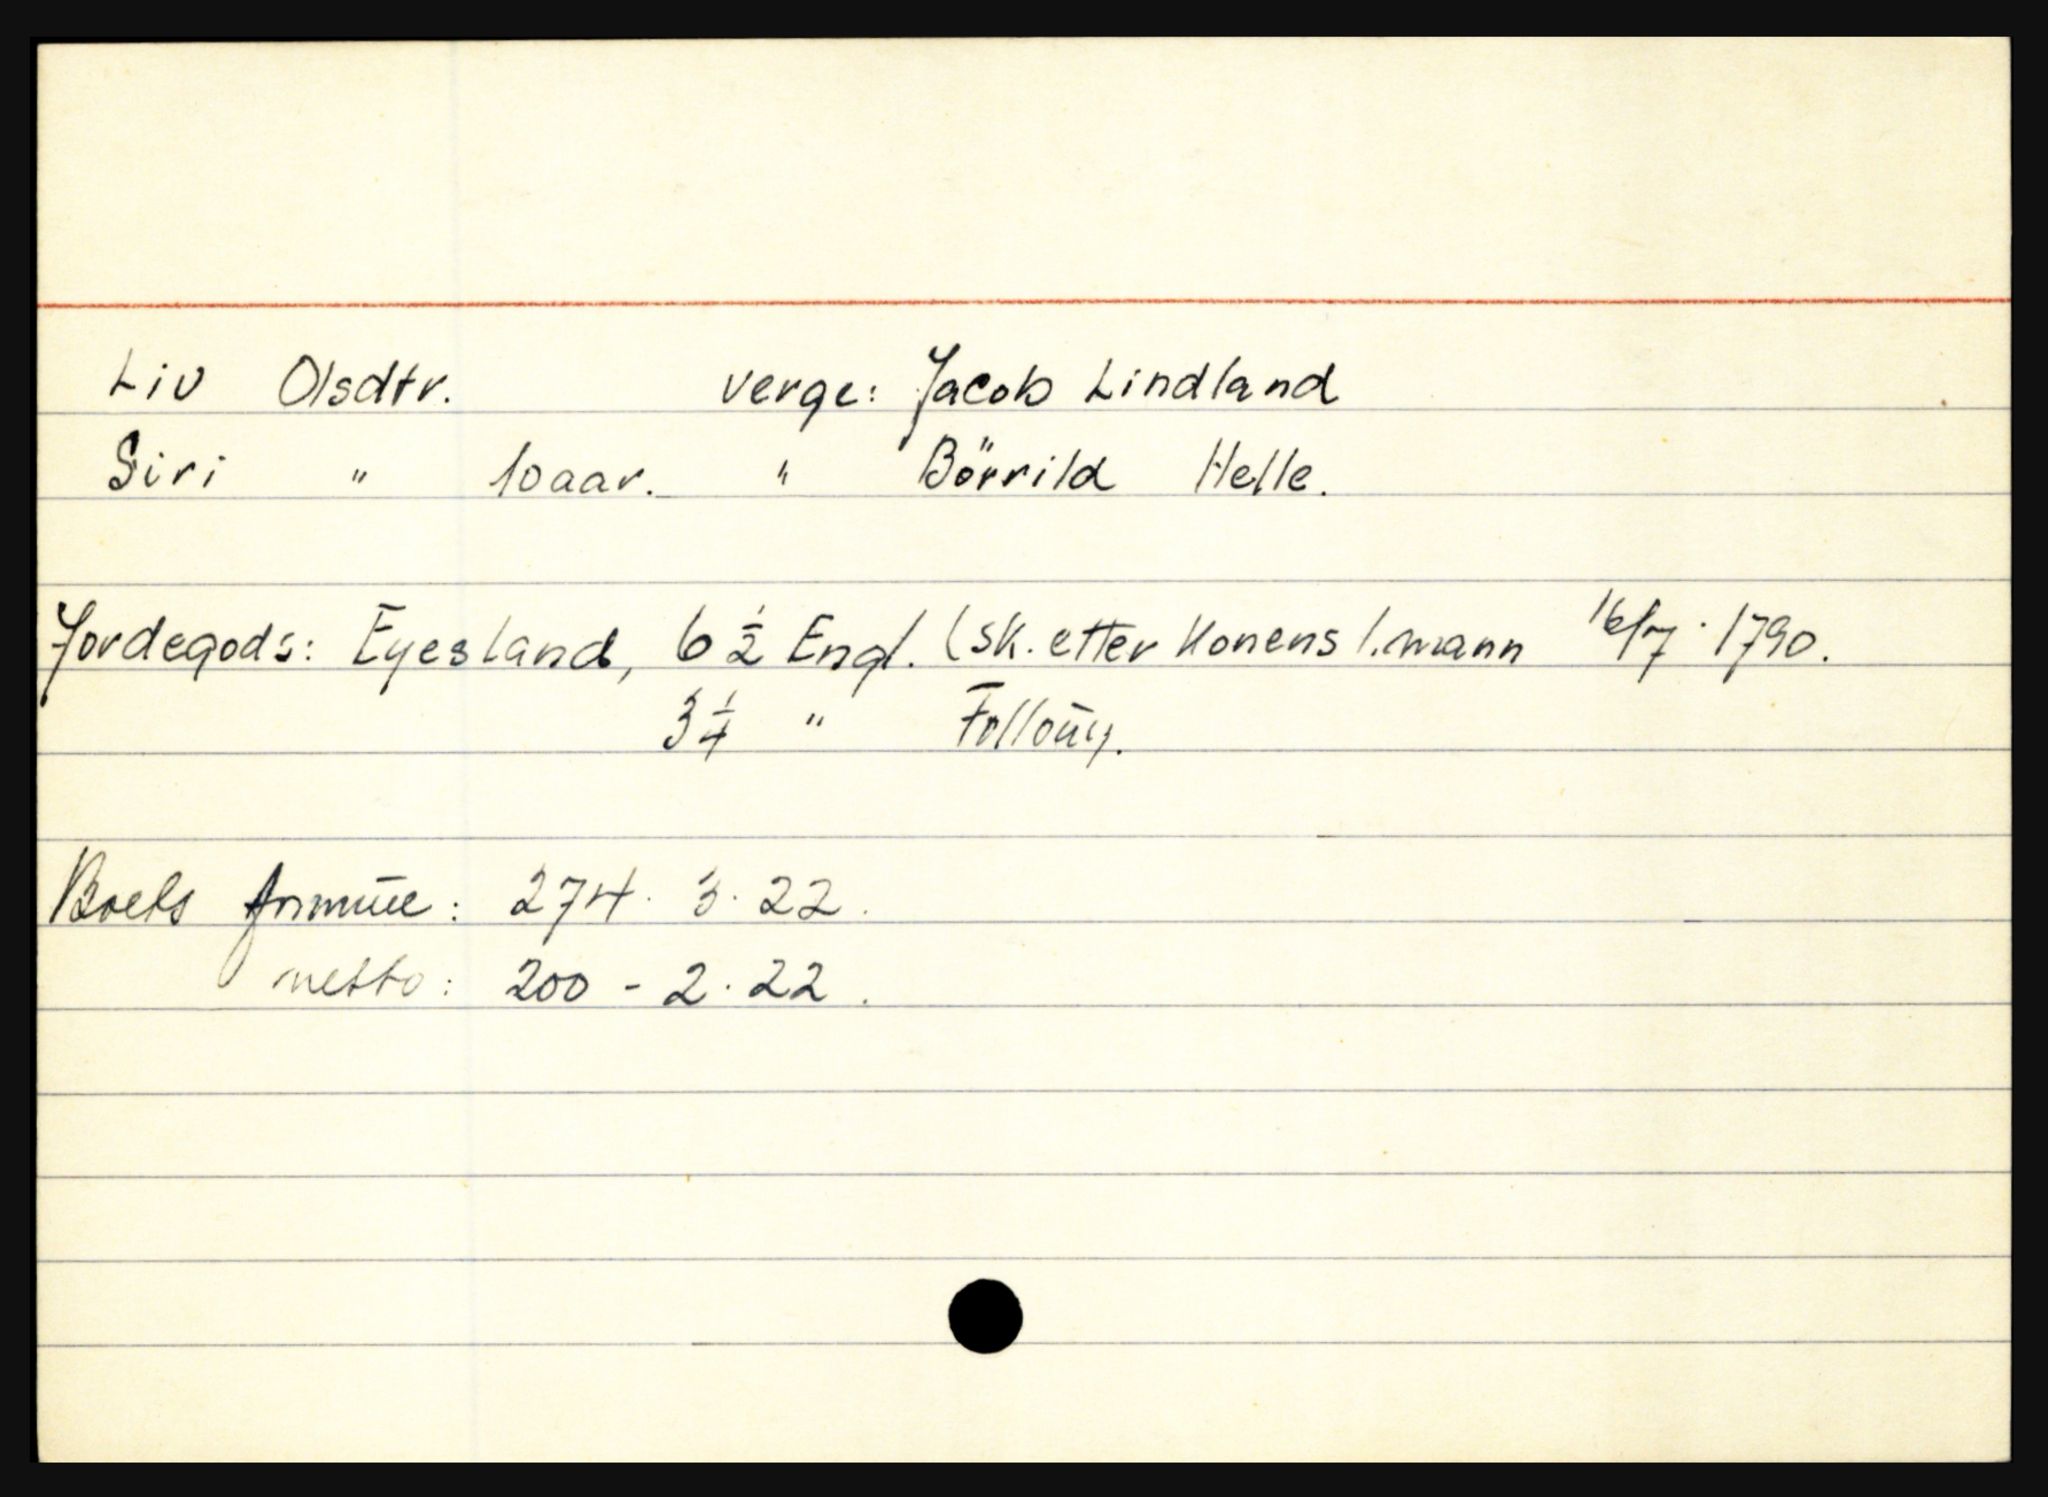 Liv Olsdtr. verge: Jacob Lindland
Siri " 10 aar. " Börrild Helle.
Jordegods: Eyesland, 6 ½ Engl. (sk. etter konens 1. mann 16/7 · 1790.
3 ¼ "
Boets formūe: 274 · 3 · 22.
netto: 200 - 2 · 22.